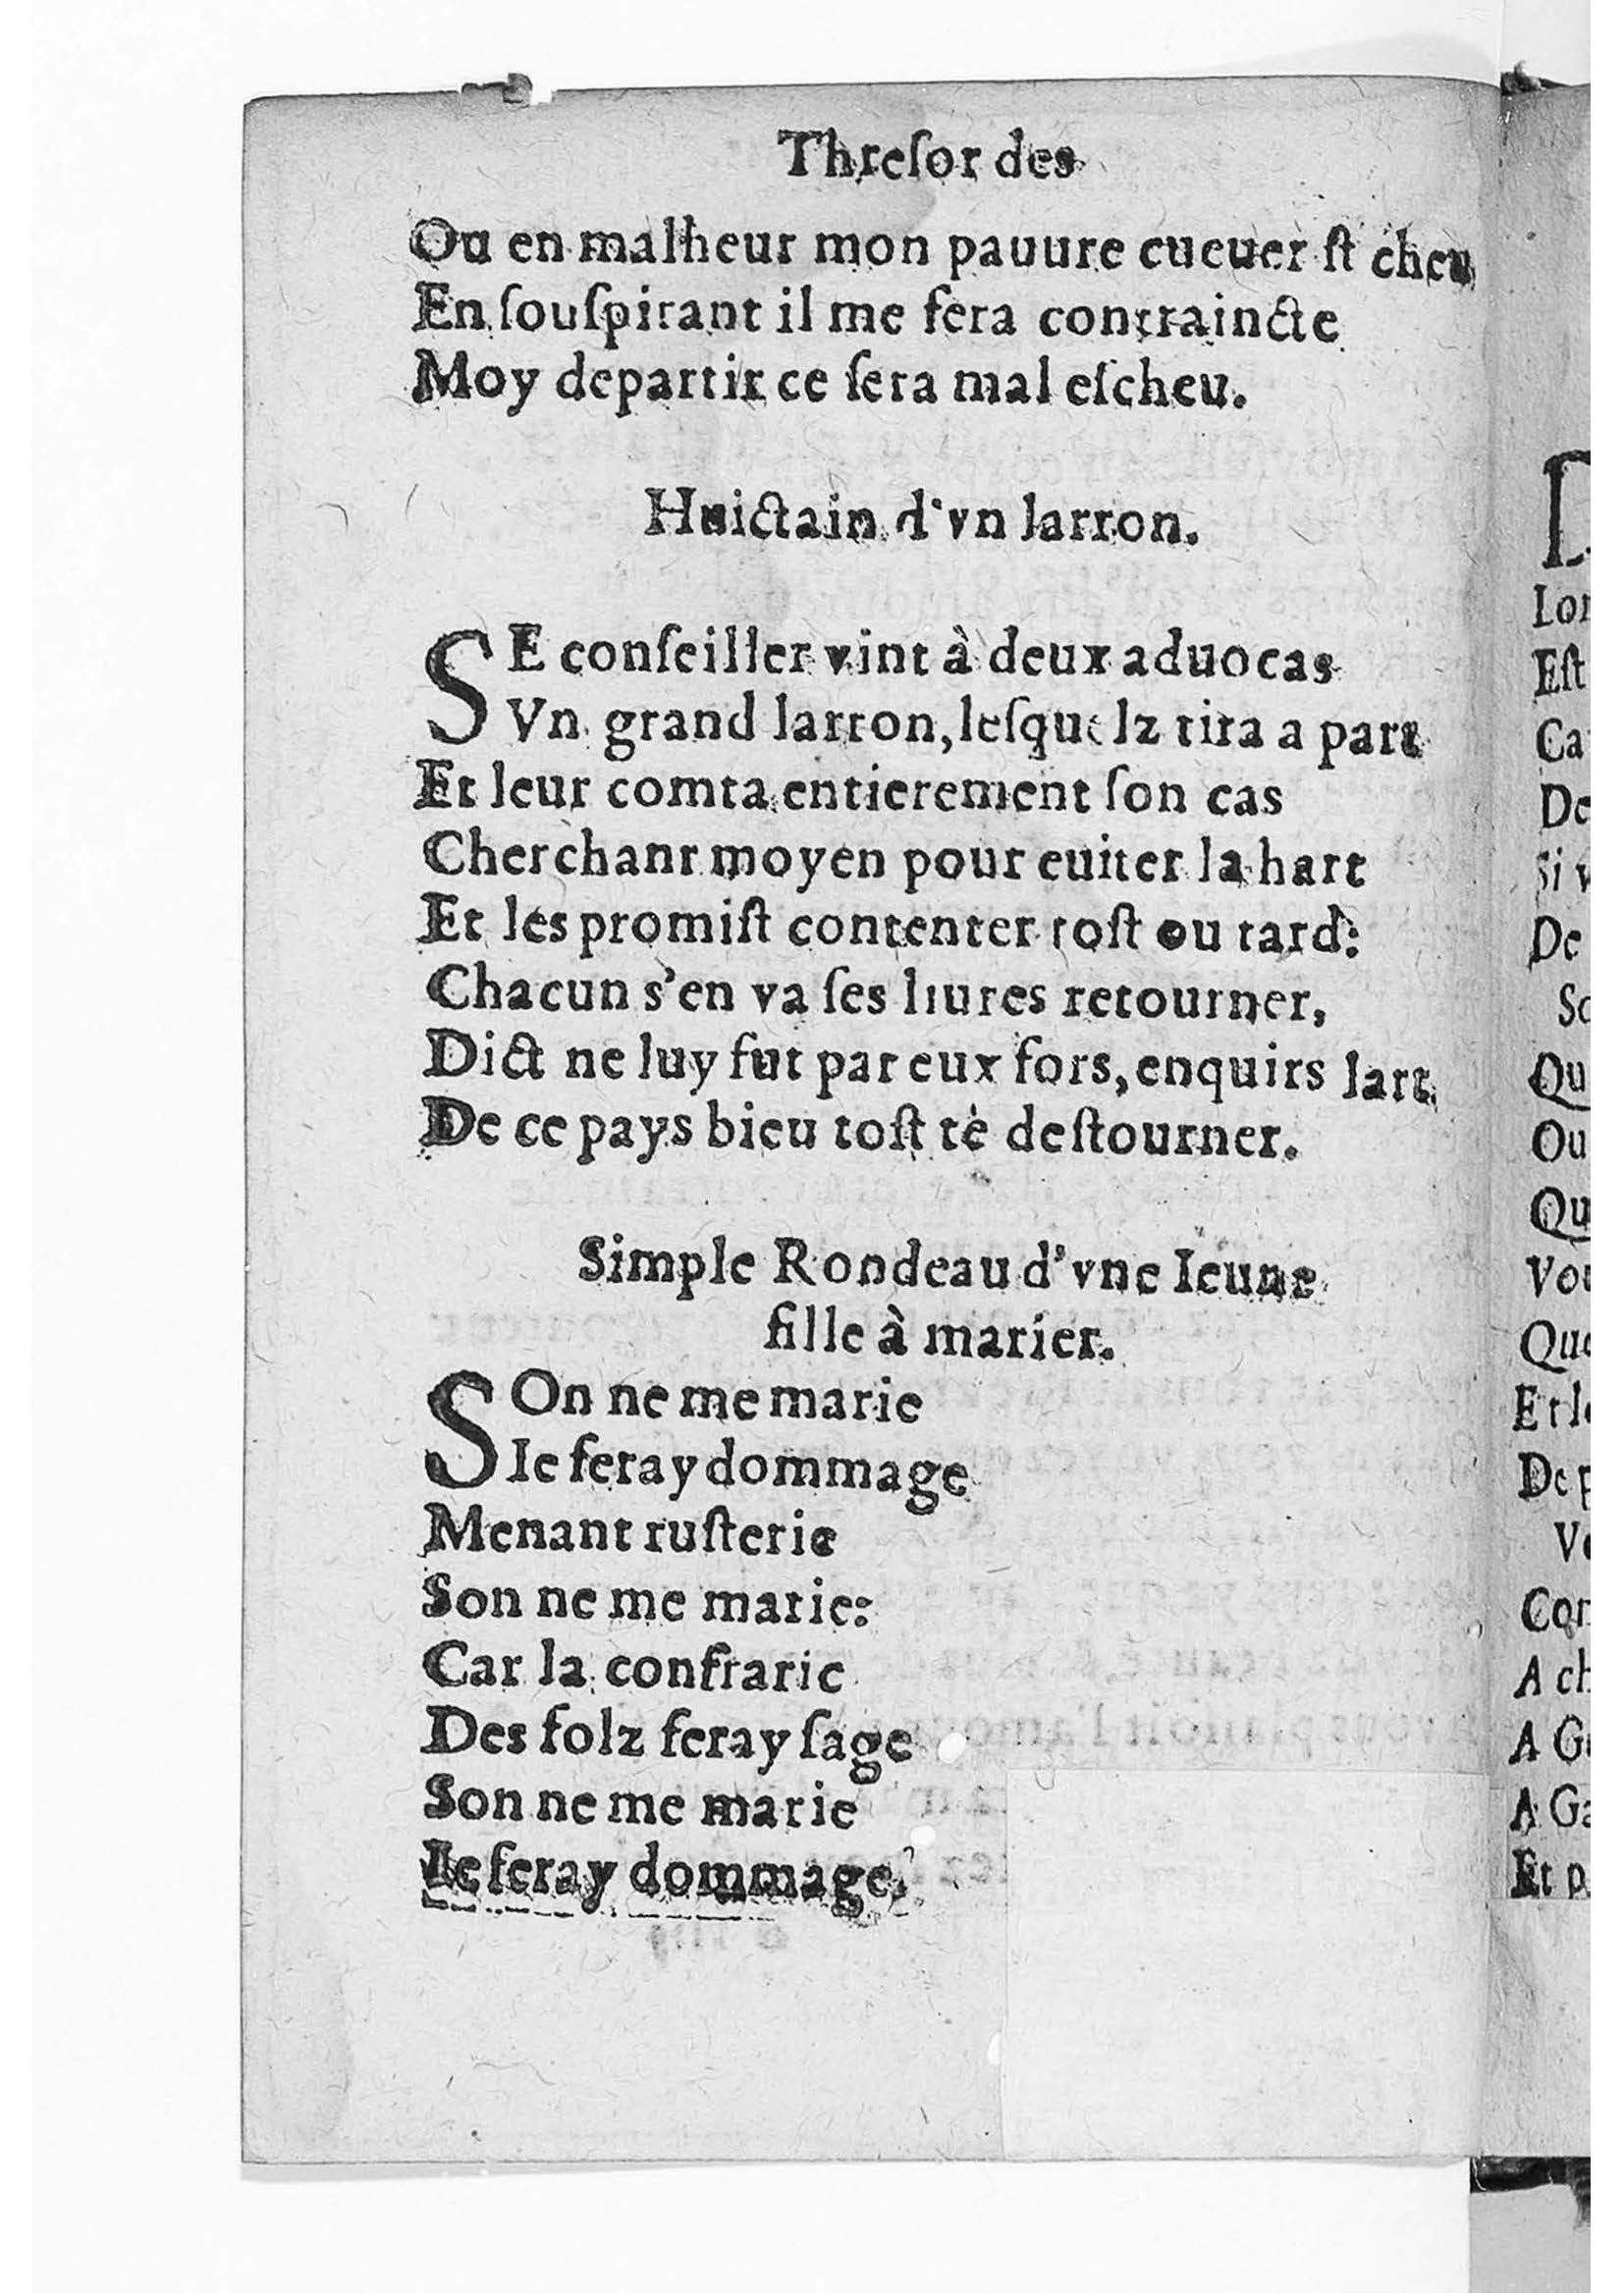 Threſor des
Ou en malheur mon pauure cueuer ſt cheu
En ſouſpirant il me fera contraincte
Moy departir ce ſera mal eſcheu.
Huictain d'vn larron.
SE conſeiller vint à deux aduocas
Vn grand larron, leſquelz tira a part
Et leur comta entierement ſon cas
Cherchant moyen pour euiter la hart
Et les promiſt contenter toſt ou tard:
Chacun s'en va ſes liures retourner,
Dict ne luy fut par eux fors, enquirs lart.
De ce pays bieu toſt tè deſtourner.
Simple Rondeau d'vne Ieune
fille à marier.
SOn ne me marie
Ie feray dommage
Menant ruſterie
Son ne me marie:
Car la confrarie
Des folz feray ſage
Son ne me marie
Ie feray dommage.
Lor
Eſt
Ca
De
Si v
De
So
Qu
Ou
Qu
Vou
Que
Et le
De p
Ve
Con
A ch
A Gu
A Ga
Et p